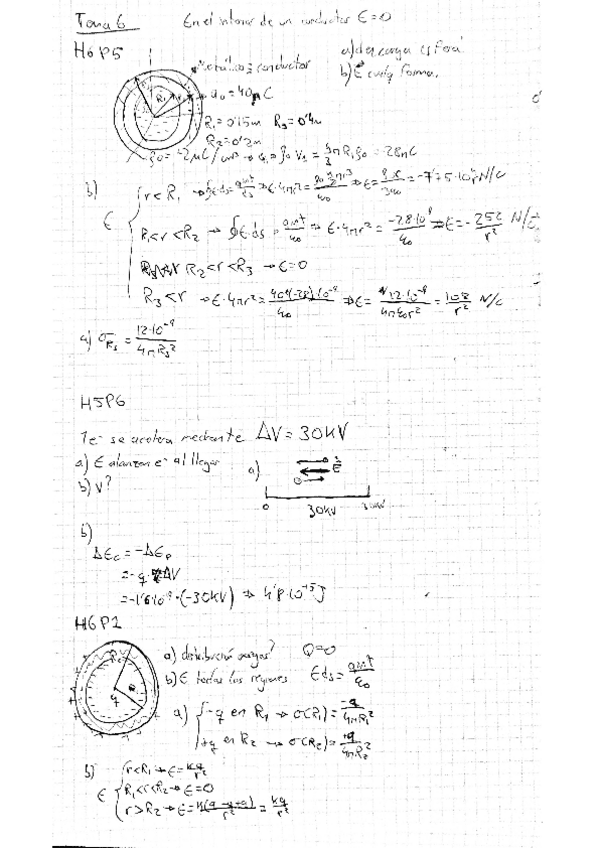 Tema 6 En el interior de un conductor E=0
H6P5 a) descarga esfera
Metálica = conductor b) E cualq forma.
Q₀ = 40nC
R₁
R₁=0'15m R₃=0'4m
R₂=0'2m
ρ₀ = -2μC/m³ → q₁ = ρ₀ V₁ = 4/3 π R₁³ρ₀ = -28nC
b)
r < R₁ → ∮E·ds = → E·4πr² = → E = = -7'5·10⁴ r N/C
E
R₁<r<R₂ → ∮E·ds = qint/ε₀ → E·4πr² = -28·10⁻⁹/ε₀ → E = -252/r² N/C
R₂<r<R₃ → E=0
R₃<r → E·4πr² = (40+(-28))·10⁻⁹/ε₀ → E = 12·10⁻⁹/4πε₀r² = 108/r² N/C
a) σR₃ = 12·10⁻⁹/4πR₃²
H5P6
1e⁻ se acelera mediante ΔV=30KV
a) E alcanza e⁻ al llegar a) E
b) v?
0 30KV
b)
ΔEc = -ΔEp
= -q·ΔV
= -1'6·10⁻¹⁹·(-30KV) → 4'8·10⁻¹⁵J
H6P2
a) distribución cargas? Q=0
b) E todas las regiones E ds = qint/ε₀
q
a) -q en R₁ → σ(R₁) = -q/4πR₁²
+q en R₂ → σ(R₂) = +q/4πR₂²
b) r<R₁ → E = kq/r²
E R₁<r<R₂ → E=0
r>R₂ → E = k(q-q+q)/r² = kq/r²